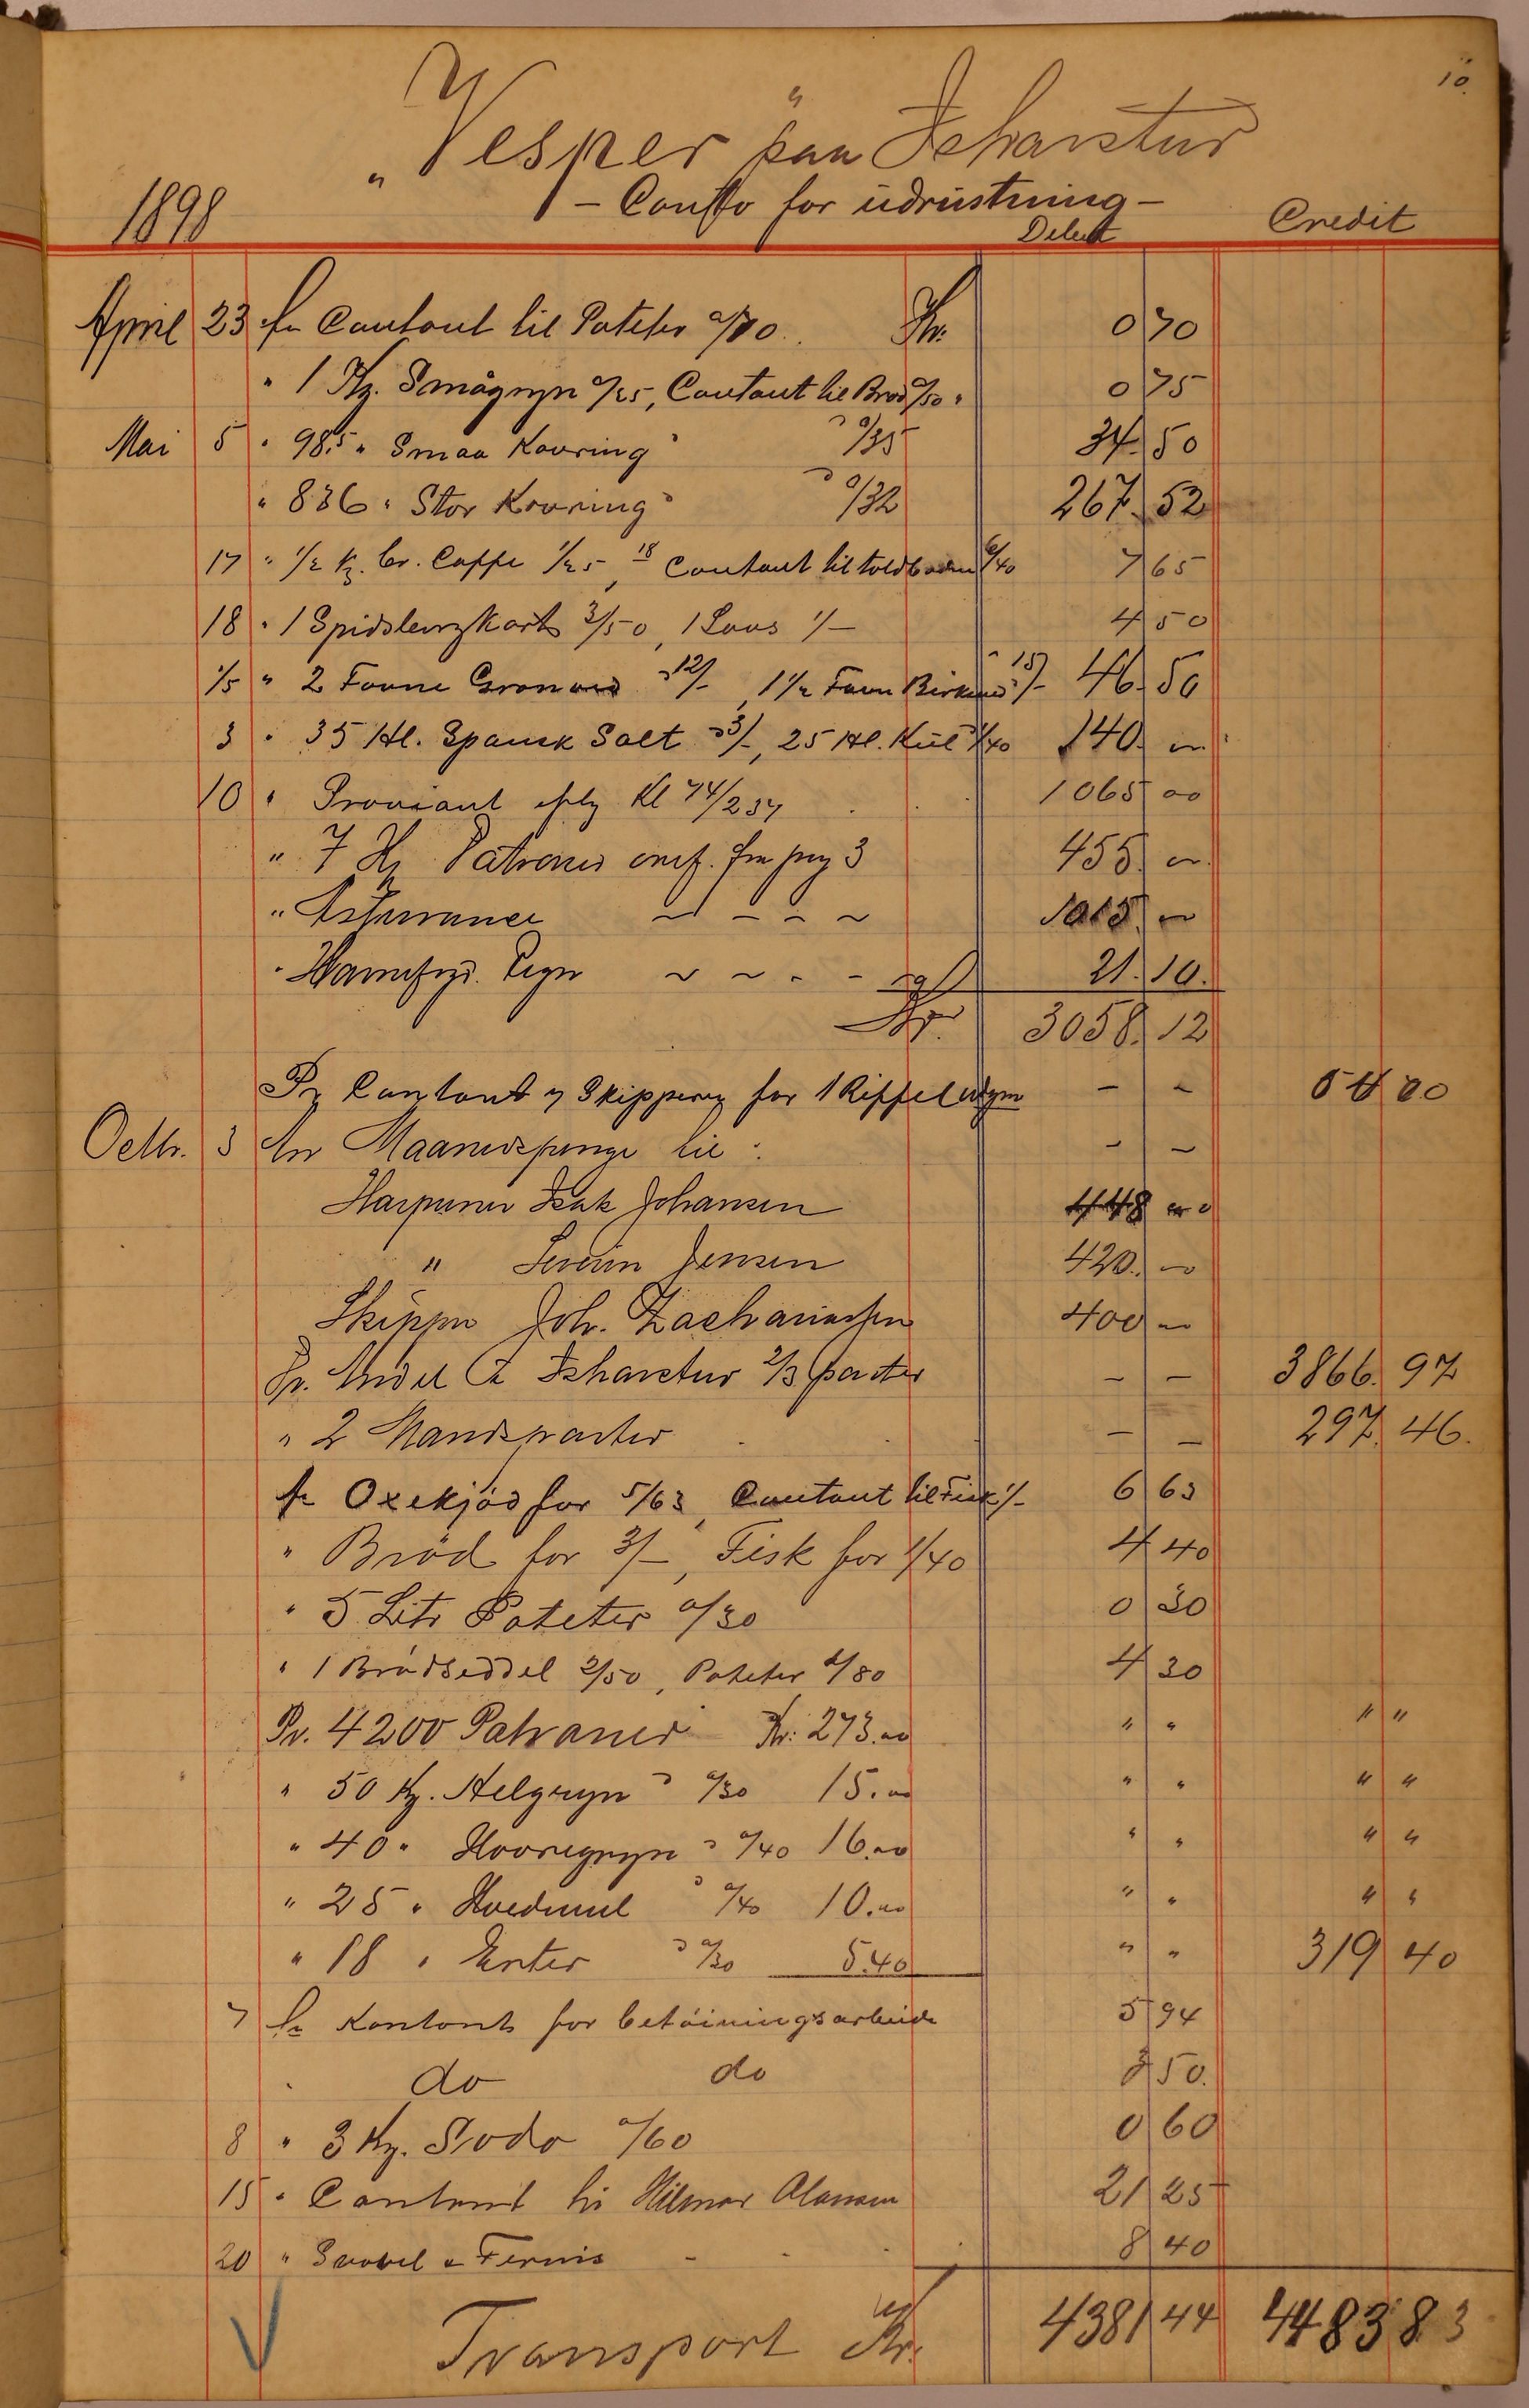 10.
„Vesper" paa Ishavstur
1898 – Conto for üdrüstning –
Debet Credit
April 23 An Contant til Poteter 0/70. Kr. 0 70
" 1 Kg. Smågryn 0/25, Contant til Brød 0/50 " 0 75
Mai 5 " 98,5 " Smaa Kavring 0/35 34. 50
" 836 " Stor Kavring 0/32 267. 52
17 " 1/2 Kg. br. Caffe 1/25, 18 Contant til toldboden 6/40 7 65
18 " 1 Spidsbergkart 3/50, 1 Loos 1/– 4 50
1/5 " 2 Favne Granved 12/–, 1 1/2 Favn Birkeved 15/– 46. 50
3 " 35 Hl. Spansk Salt 3/–, 25 Hl. Kül 1/40 140. 00
10 " Proviant Kl 74/237 1065 00
" 7 Patroner 3 455. 00
" Assurance ~ – – ~ 1015. 00
" Hyre ~ ~ – – 21. 10.
Kr. 3058. 12
Pr Contant Skipperen for 1 Riffel – – 54 00
Octbr. 3 An Maanedspenge til : – –
Harpuner Isak Johansen 448 00
" Severin Jensen 420. 00
Skipper Joh. Zachariassen 400 00
Pr. Andel i Ishavstur 2/3 parter – – 3866. 97
" 2 Mandsparter – – 297. 46.
An Oxekjød for 5/63, Contant til Fisk 1/– 6 63
" Brød for 3/–, Fisk for 1/40 4 40
" 5 Litr Poteter 0/30 0 30
" 1 Brødseddel 3/50, Poteter 0/80 4 30
Pr. 4200 Patroner Kr: 273.00 " " " "
" 50 Kg. Helgryn 0/30 15.00 " " " "
" 40 " Havregryn 0/40 16.00 " " " "
" 25 " Hvedemel 0/40 10.00 " " " "
" 18 " Erter 0/30 5.40 " " 319 40
7 An Kontant for betøiningsarbeide 5 94
" do do 3 50.
8 " 3 Kg. Soda 0/60 0 60
15 " Contant til Hilmar Olausen 21 25
20 " Svovel & Fernis 8 40
Transport Kr. 4381 44 4483 83